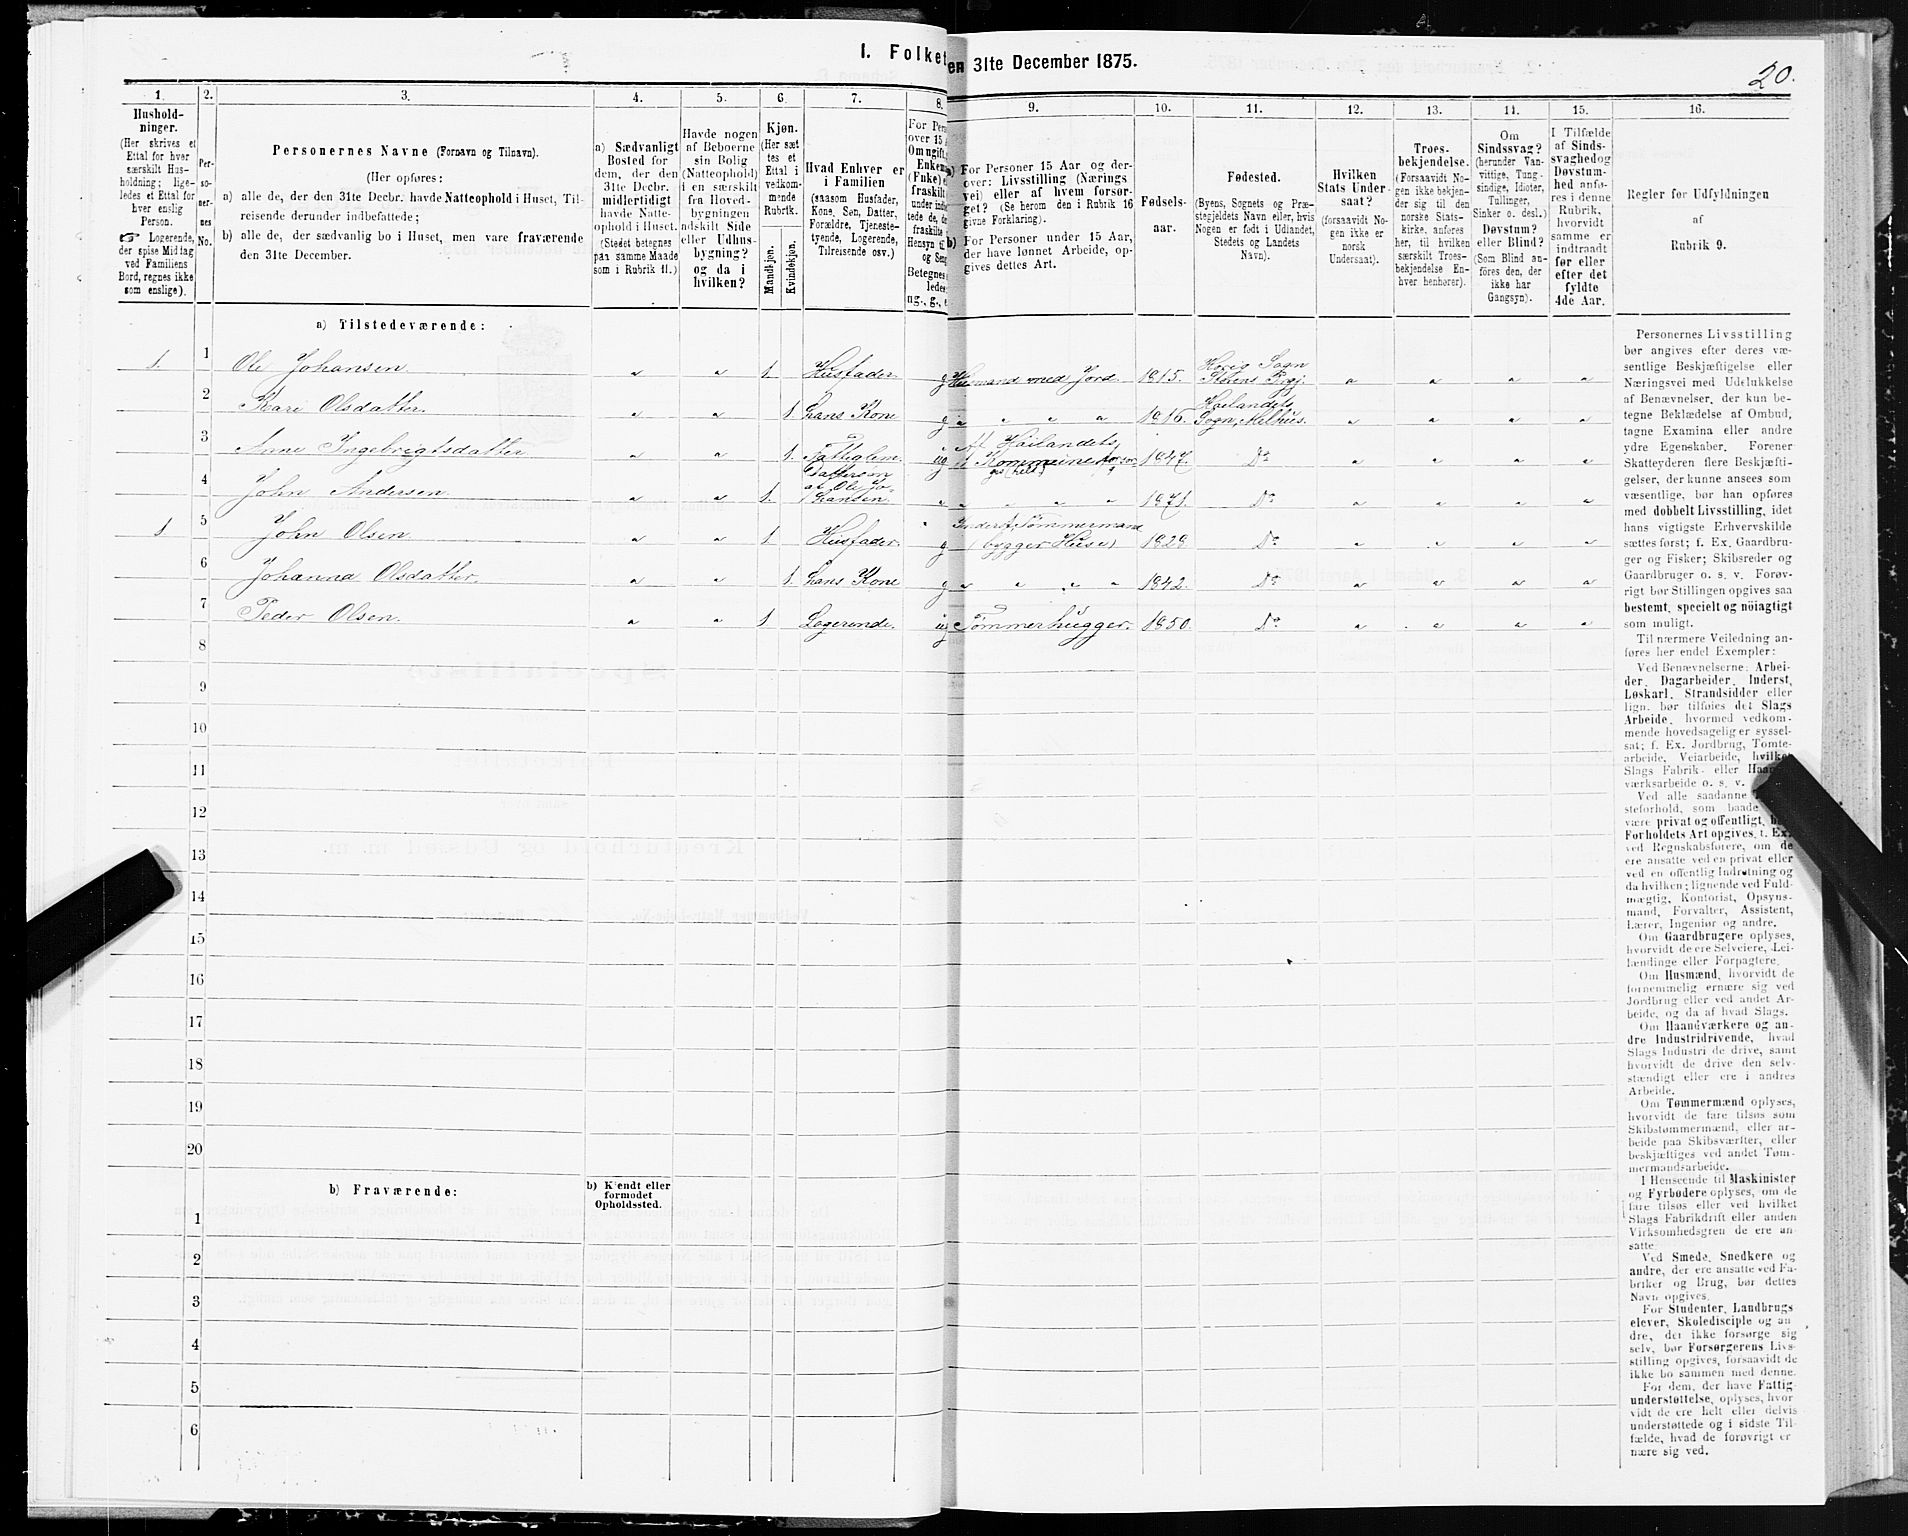 I. Folket
en 31te December 1875.
20.
1.
2.
3.
4.
5.
6.
7.
8.
9.
10.
11.
12.
13.
14.
15.
16.
Hushold-
ninger.
(Her skrives et
Ettal for hver
særskilt Hus-
holdning; lige-
ledes et Ettal for
hver enslig
Person.
☞ Logerende,
der spise Middag
ved Familiens
Bord, regnes ikke
som enslige).
Per-
so-
ner-
nes
No.
Personernes Navne (Fornavn og Tilnavn).
(Her opføres:
a) alle de, der den 31te Decbr. havde Natteophold i Huset, Til-
reisende derunder indbefattede;
b) alle de, der sædvanlig bo i Huset, men vare fraværende
den 31te December.
a) Sædvanligt
Bosted for
dem, der den
31te Decbr.
midlertidigt
havde Natte-
ophold i Huset.
(Stedet betegnes
paa samme Maade
som i Rubrik 11.)
Havde nogen
af Beboerne
sin Bolig
(Natteophold)
i en særskilt
fra Hoved-
bygningen
adskilt Side
eller Udhus-
bygning?
og da i
hvilken?
Kjøn.
(Her sæt-
tes et
Ettal i
vedkom-
mende
Rubrik.
Mandkjøn.
Kvindekjøn.
Hvad Enhver er
i Familien
(saasom Husfader,
Kone, Søn, Datter,
Forældre, Tjeneste-
tyende, Logerende,
Tilreisende osv.)
For Pers
over 15 A
Om ugift,
Enkem
(Fuke) e
fraskilt
under indbe
tede de, de
fraskilte
Hensyn til
og Seng
Betegnes
ledes
ug., g., e
a) For Personer 15 Aar og der-
over: Livsstilling (Nærings
vei) eller af hvem forsør-
get? (Se herom den i Rubrik 16
givne Forklaring).
b) For Personer under 15 Aar,
der have lønnet Arbeide, op-
gives dettes Art.
Fødsels-
aar.
Fødested.
(Byens, Sognets og Præ-
stegjeldets Navn eller, hvis
Nogen er født i Udlandet,
Stedets og Landets
Navn).
Hvilken
Stats Under-
saat?
(forsaavidt No-
gen ikke er
norsk
Undersaat).
Troes-
bekjendelse.
(Forsaavidt No-
gen ikke bekjen-
der sig til den
norske Stats-
kirke, anføres
her, til hvilken
særskilt Troes-
bekjendelse En-
hver henhører).
Om
Sindssvag?
(herunder Van-
vittige, Tung-
sindige, Idioter,
Tullinger,
Sinker o. desl.)
Døvstum?
eller Blind?
(Som Blind an-
føres den, der
ikke har
Gangsyn).
I Tilfælde
af Sinds-
svaghedog
Døvstum-
hed anfø-
res i denne
Rubrik,
hvorvidt
samme er
indtraadt
før eller
efter det
fyldte
4de Aar.
Regler for Udfyldningen
af
Rubrik 9.
a) Tilstedeværende:
1. 1 Ole Johansen. " " 1. Husfader. g Husmand med Jord. 1815. Horig Sogn Størens Prgj. " " " "
2 Kari Olsdatter. " " 1. hans Kone g " " " " 1816. Høilandets Sogn, Melhus. " " " "
3 Anne Ingebrigtsdatter " " 1. Fattiglem. ug af Høilandets Kommune forsør- get (helt) 1847. Do " " " "
4 John Andersen. " " 1. Dattersøn af Ole Jo- hansen. " " " " " 1871. Do " " " "
1 5 John Olsen. " " 1 Husfader. g Inderst, Tømmermand (bygger Huse) 1829 Do " " " "
6 Johanna Olsdatter. " " 1. hans Kone g " " " " 1842. Do " " " "
7 Peder Olsen. " " 1 Logerende. ug Tømmerhugger. 1850. Do " " " "
8
9
10
11
12
13
14
15
16
17
18
19
20
b) Fraværende:
b) Kjendt eller
formodet
Opholdssted.
1
2
3
4
5
6
Personernes Livsstilling
bør angives efter deres væ-
sentlige Beskjæftigelse eller
Næringsvei med Udelukkelse
af Benævnelser, der kun be-
tegne Beklædelse af Ombud,
tagne Examina eller andre
ydre Egenskaber. Forener
Skatteyderen flere Beskjæfti-
gelser, der kunne ansees som
væsentlige, bør han opføres
med dobbelt Livsstilling, idet
hans vigtigste Erhvervskilde
sættes først; f. Ex. Gaardbru-
ger og Fisker; Skibsreder og
Gaardbruger o. s. v. Forøv-
rigt bør Stillingen opgives saa
bestemt, specielt og nöiagtigt
som muligt.
Til nærmere Veiledning an-
føres her endel Exempler:
Ved Benævnelserne: Arbei-
der, Dagarbeider, Inderst,
Løskarl, Strandsidder eller
lign. bør tilføies det Slags
Arbeide, hvormed vedkom-
mende hovedsagelig er syssel-
sat; f. Ex. Jordbrug, Tomte-
arbeide, Veiarbeide, hvilket
Slags Fabrik- eller Haand-
værksarbeide o. s. v.
Ved alle saadanne
steforhold, som baade
være privat og offentligt, bør
Forholdets Art opgives, t. Ex.
ved Regnskabsførere, om de
ere ansatte ved en privat eller
ved en offentlig Indretning og
da hvilken; lignende ved Fuld-
mægtig, Kontorist, Opsyns-
mand, Forvalter, Assistent,
Lærer, Ingeniør og andre.
Om Gaardbrugere oplyses,
hvorvidt de ere Selveiere, Lei-
lændinge eller Forpagtere.
Om Husmænd, hvorvidt de
fornemmelig ernære sig ved
Jordbrug eller ved andet Ar-
beide, og da af hvad Slags.
Om Haandværkere og an-
dre Industridrivende, hvad
Slags Industri de drive, samt
hvorvidt de drive den selv-
stændigt eller ere i andres
Arbeide.
Om Tømmermænd oplyses,
hvorvidt de fare tilsøs som
Skibstømmermænd, eller ar-
beide paa Skibsværfter, eller
beskjæftiges ved andet Tøm-
mermandsarbeide.
I Henseende til Maskinister
og Fyrbødere oplyses, om de
fare tilsøs eller ved hvilket
Slags Fabrikdrift eller anden
Virksomhedsgren de ere an-
satte.
Ved Smede, Snedkere og
andre, der ere ansatte ved Fa-
briker og Brug, bør dettes
Navn opgives.
For Studenter, Landbrugs
elever, Skoledisciple og an
dre, der ikke forsørge sig
selv, bør Forsørgerens Livs-
stilling opgives, forsaavidt de
ikke bo sammen med denne.
For dem, der have Fattig-
understøttelse, oplyses, hvor-
vidt de ere helt eller delvis
understøttede og i sidste Til-
fælde, hvad de forøvrigt er-
nære sig ved.